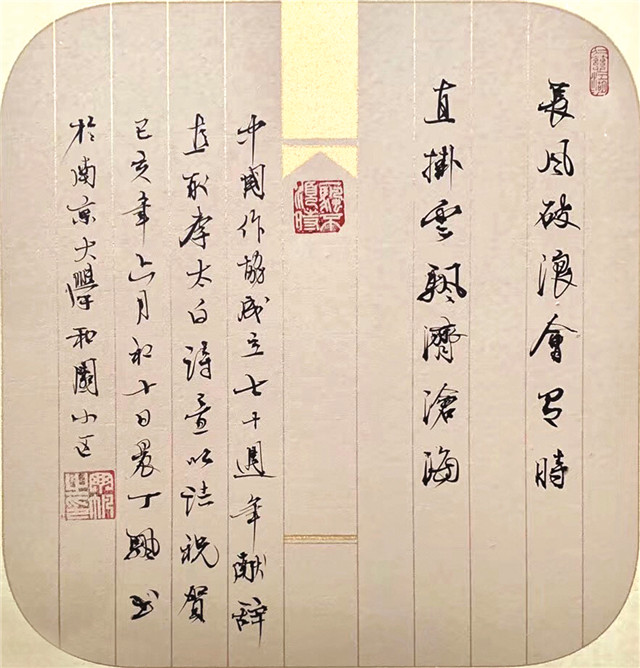 長風破浪會有時
直掛雲颿濟滄海
中國作協成立七十週年獻辭
取李太白詩意以誌祝賀
己亥年六月初十日晨丁颿书
於南京大學和園小区